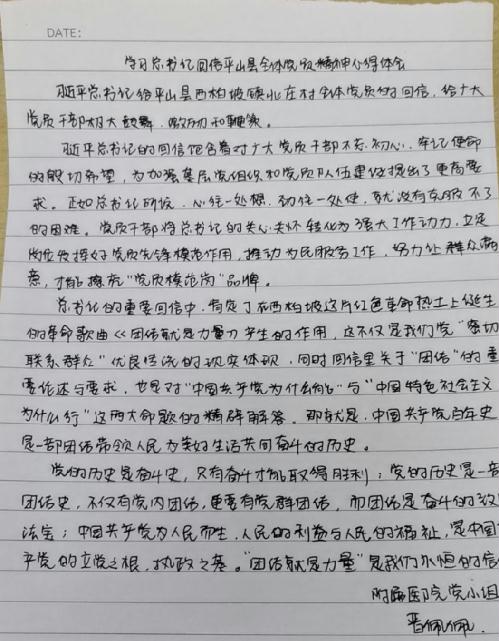 DATE:
学习总书记回信平山县全体党员精神心得体会
习近平总书记给平山县西柏坡镇北庄村全体党员的回信，给广大
党员干部极大鼓舞、激励和鞭策。
习近平总书记的回信饱含着对广大党员干部不忘初心、牢记使命
的殷切希望，为加强基层党组织和党员队伍建设提出了更高要
求。正如总书记所说，心往一处想、劲往一处使，就没有克服不了
的困难。党员干部将总书记的关心关怀转化为强大工作动力，立足
岗位发挥好党员先锋模范作用，推动为民服务工作，努力让群众满
意，才能擦亮“党员模范岗”品牌。
总书记的重要回信中，肯定了在西柏坡这片红色革命热土上诞生
的革命歌曲《团结就是力量》产生的作用，这不仅是我们党“密切
联系群众”优良传统的现实体现，同时回信里关于“团结”的重
要论述与要求，也是对“中国共产党为什么能”与“中国特色社会主义
为什么行”这两大命题的精辟解答。那就是，中国共产党百年史
是一部团结带领人民为美好生活共同奋斗的历史。
党的历史是奋斗史，只有奋斗才能取得胜利；党的历史是一部
团结史，不仅有党内团结，更要有党群团结，而团结是奋斗的
法宝；中国共产党为人民而生，人民的利益与人民的福祉，是中国
产党的立党之根，执政之基。“团结就是力量”是我们永恒的信
附属医院党小组
晋佩佩